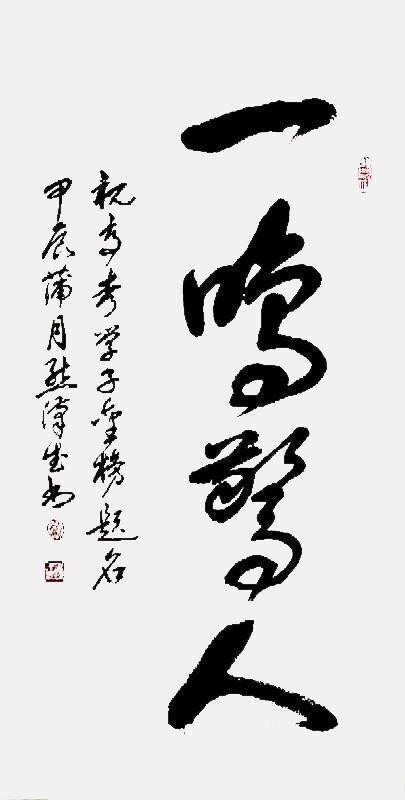 一鸣惊人
祝高考学子金榜题名
甲辰蒲月熊泽生书